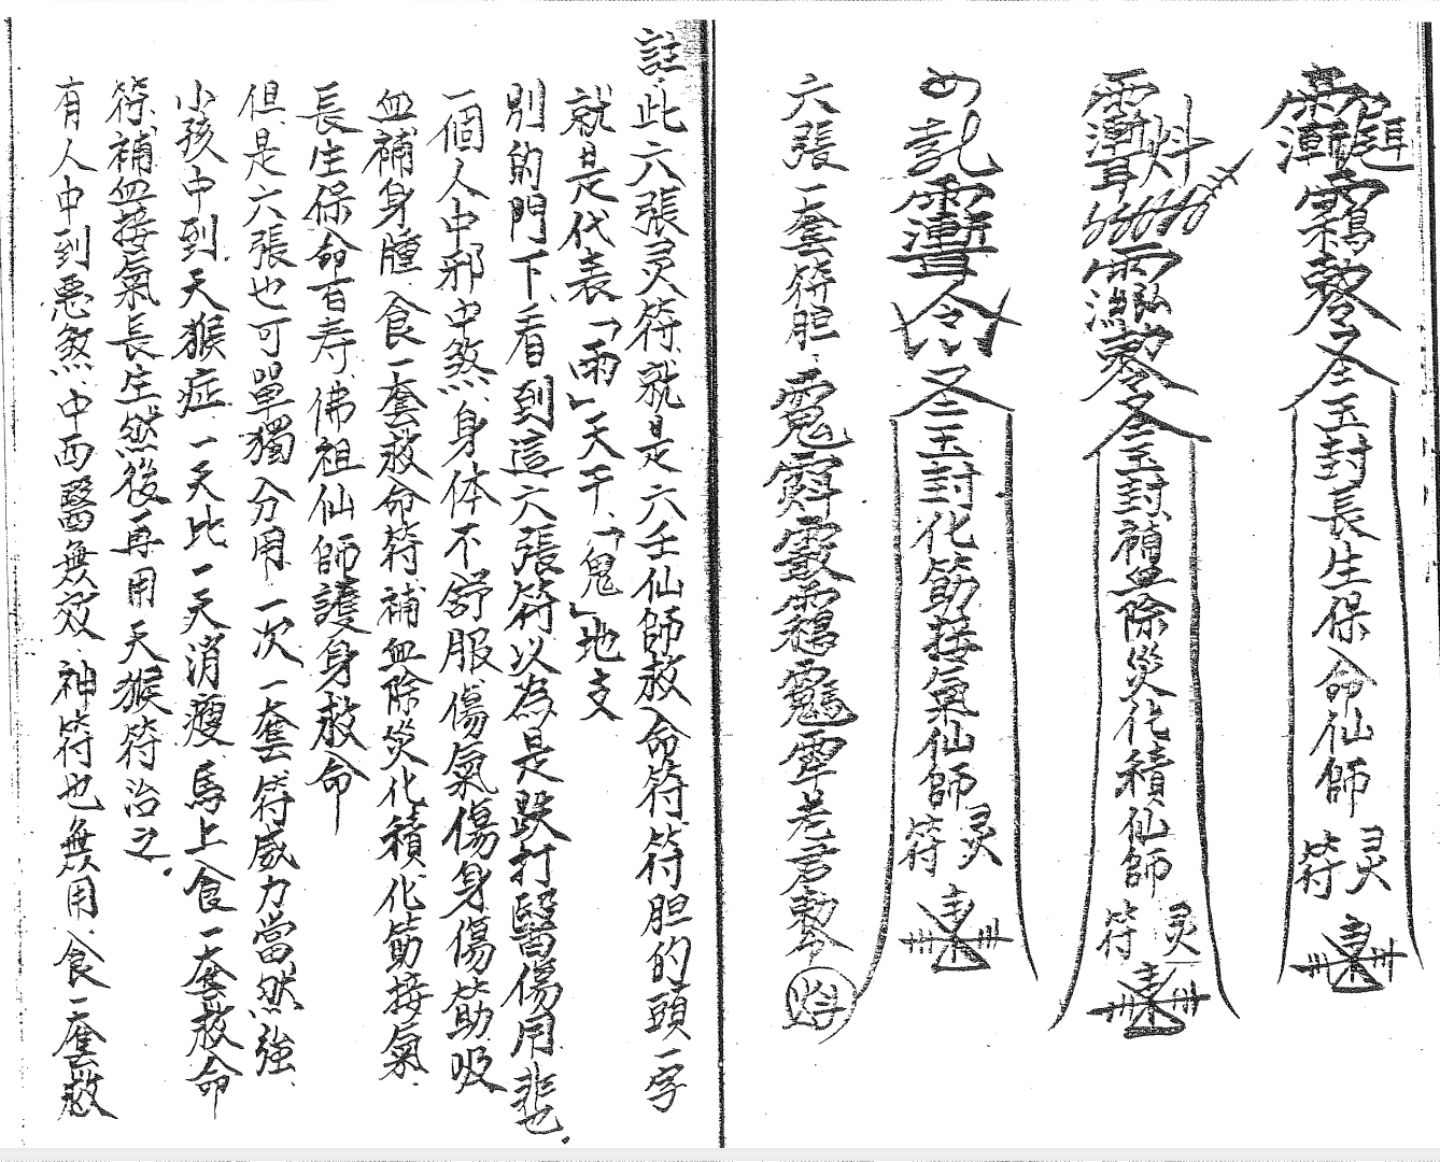 敕令玉封長生保命仙師
灵符
敕令玉封補血除炎化積仙師
灵符
令
玉封化筋接氣仙師
灵符
六張一套符胆
老君敕令
註.此六張灵符.就是六壬仙師救命符.符胆的頭一字
就是代表「雨」天干、「鬼」地支
別的門下.看到這六張符以為是跌打醫傷用.非也.
一個人中邪中煞.身体不舒服.傷氣傷身傷筋.吸
血補身腫.食一套救命符補血除炎化積.化筋接氣.
長生保命百寿.佛祖仙師護身救命
但.是六張也可單獨分用.一次一套符.威力當然強.
小孩中到天猴症.一天比一天消瘦.馬上食一套救命
符.補血接氣長生然後再用天猴符治之.
有人中到惡煞.中西醫無效.神符也無用.食一套救